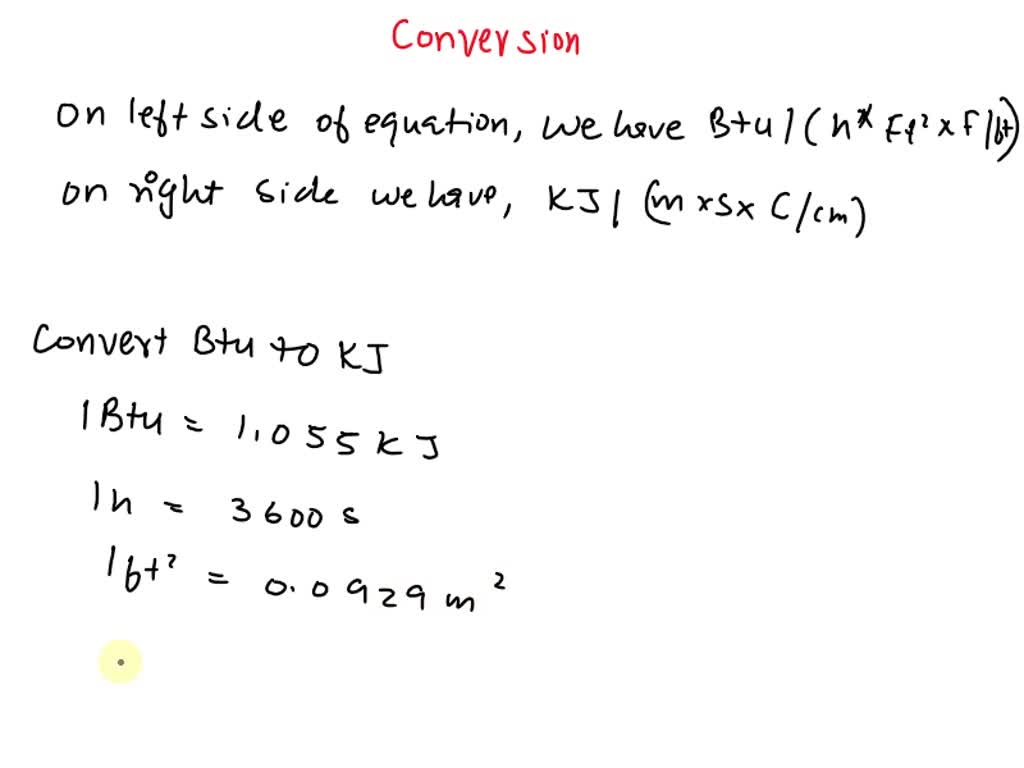 Conversion
On left side of equation, we have Btu / (h* Ft² x F/ft)
on right side we have, KJ / (m x s x C/cm)
Convert Btu to KJ
1 Btu = 1.055 KJ
1h = 3600 s
1 ft² = 0.0929 m²